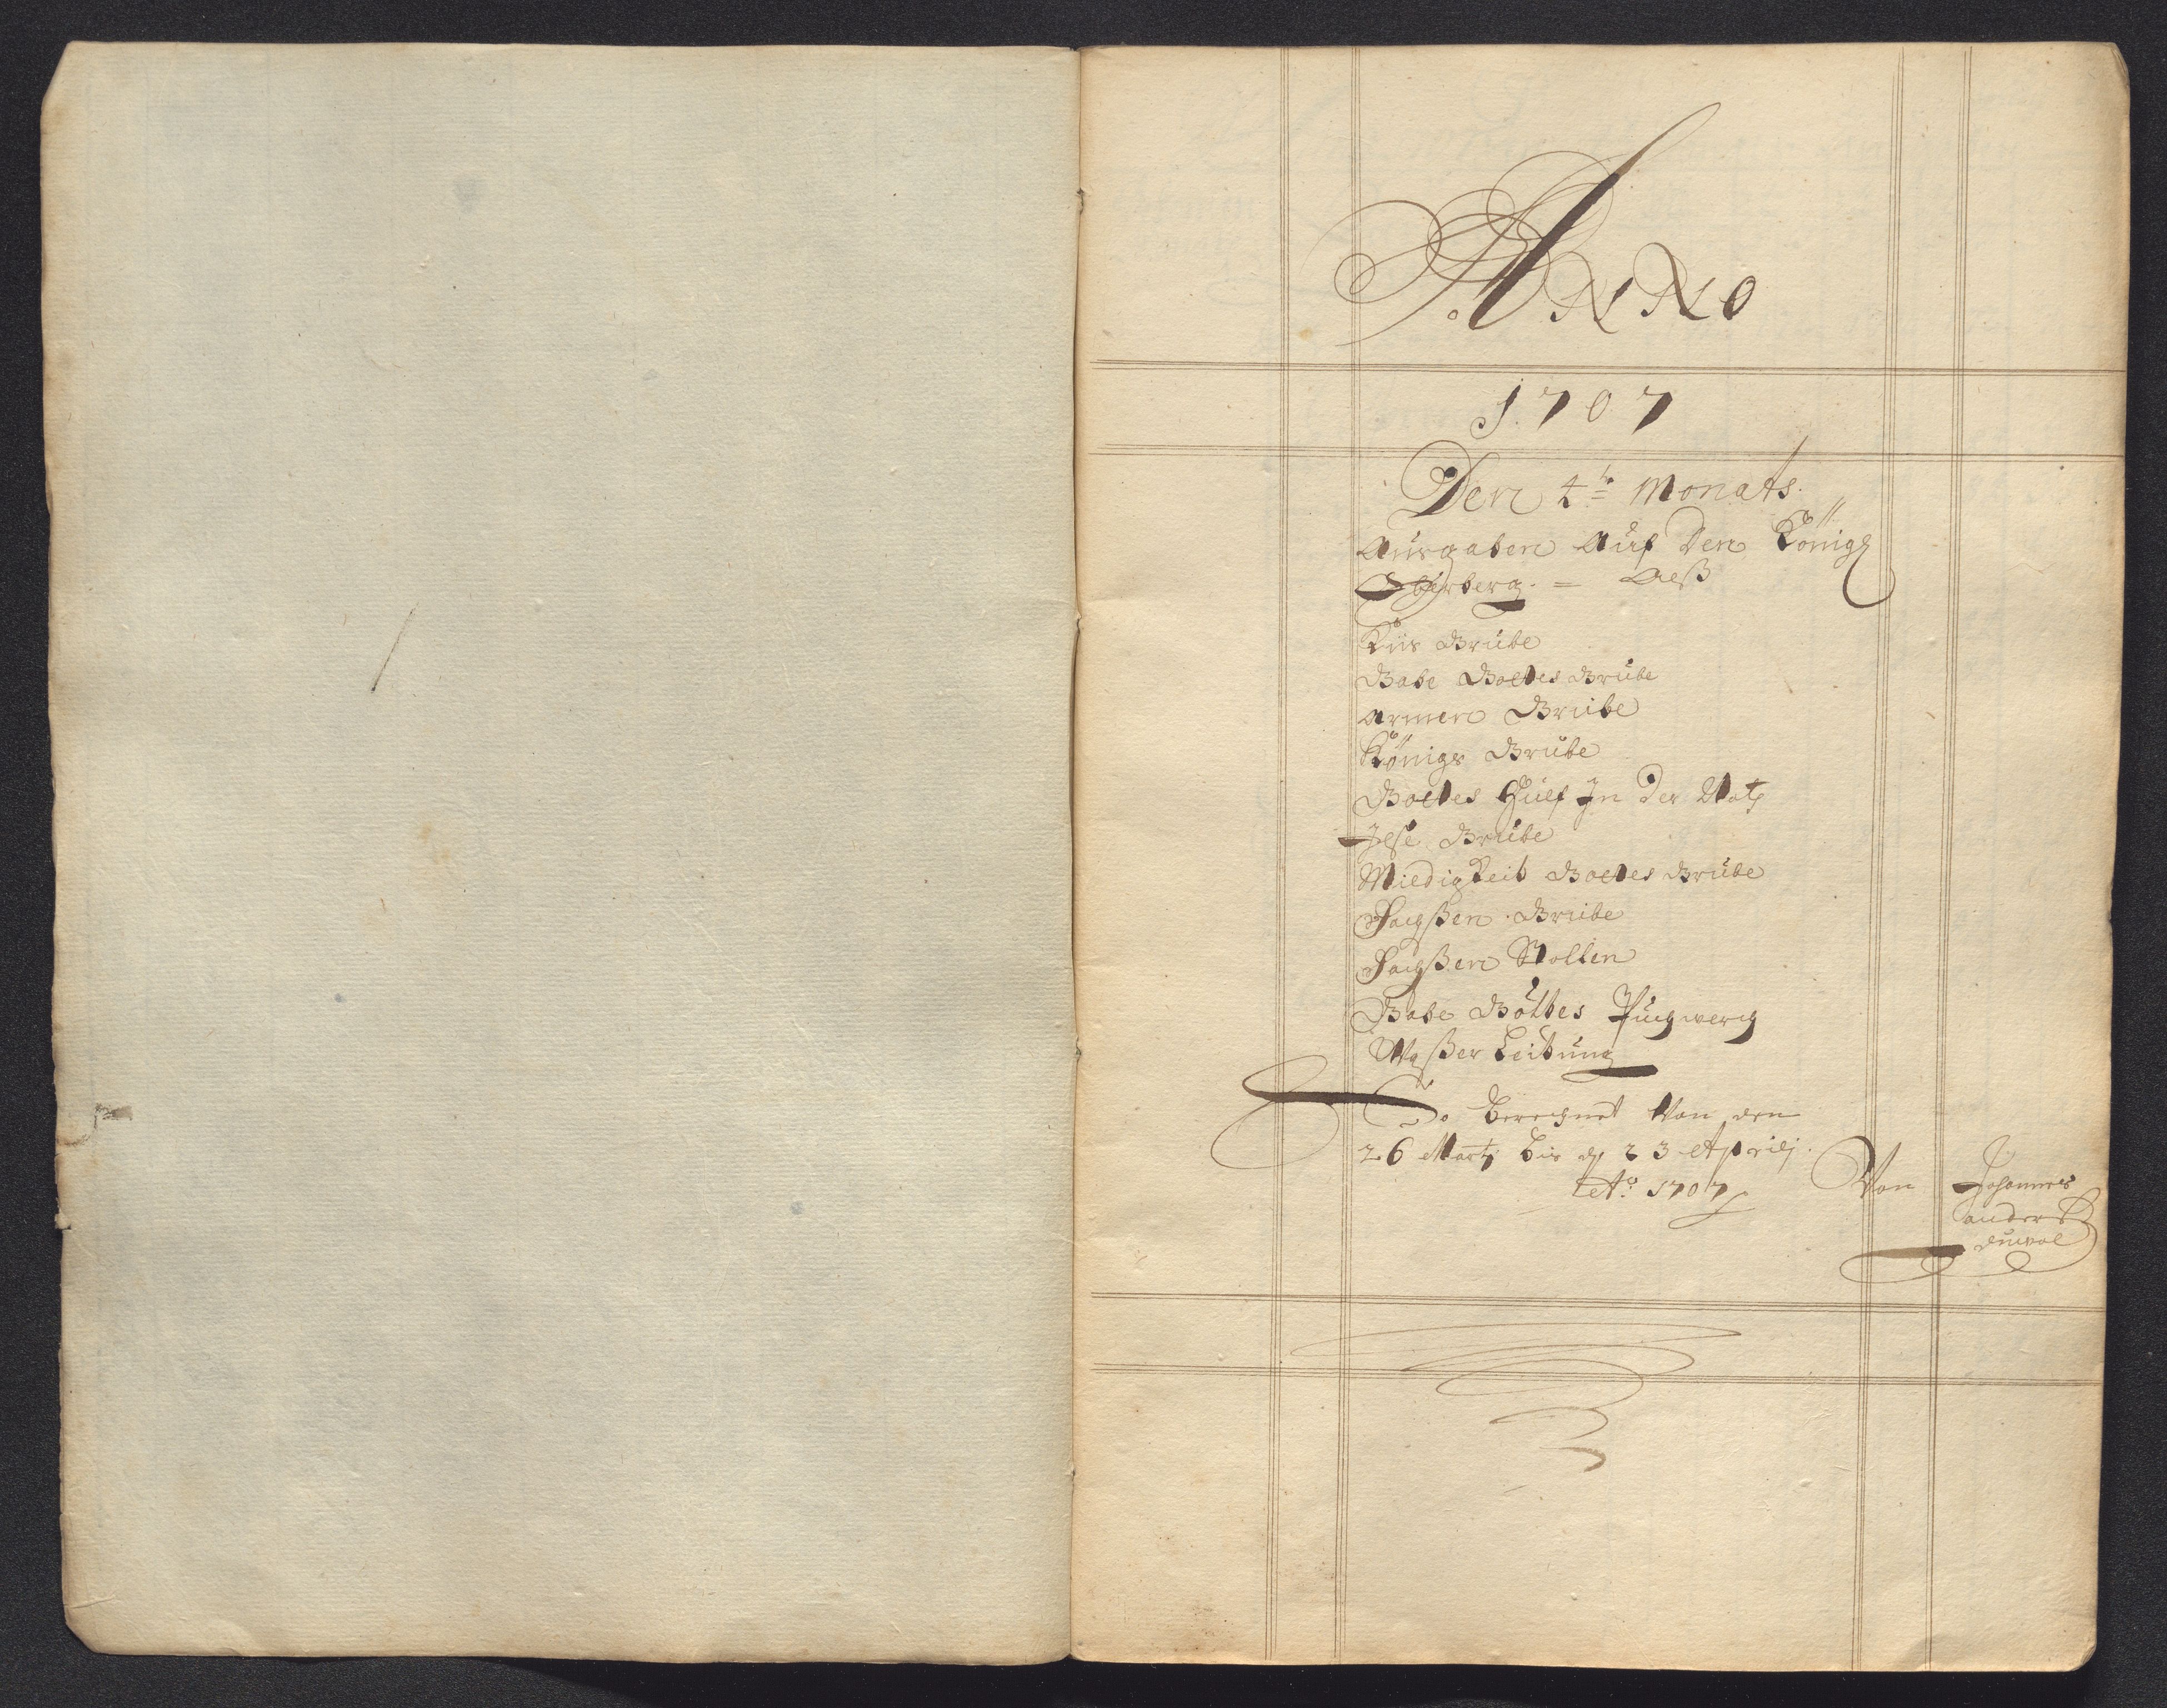 ANNO
1707
Den 4t Monats.
Ausgaben Auf Den Königl
Oberberg. = Alß
Küs Grube
Gabe Gottes Grube
Armen Grube
Königs Grube
Gottes Hülf In Der Noth
Grube
Mildigkeit Gottes Grube
Sachßen Grube
Sachßen Stollen
Gabe Gottes Puchwerch
Waßer Leitung
So berechnet Von den
26 Marty bis d 23 Aprilj.
Ao 1707
Von Johannes